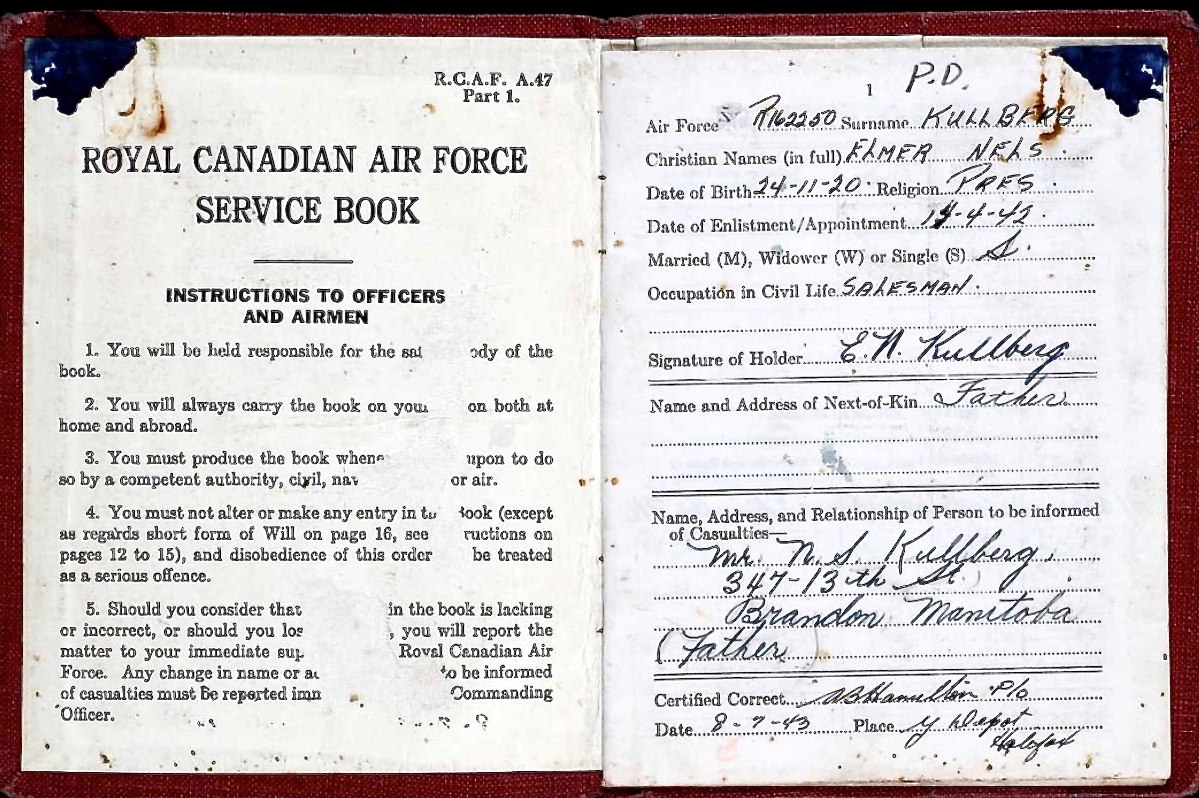 R.C.A.F. A.47
Part 1.
ROYAL CANADIAN AIR FORCE
SERVICE BOOK
INSTRUCTIONS TO OFFICERS
AND AIRMEN
1. You will be held responsible for the ody of the
book.
2. You will always carry the book on on both at
home and abroad.
3. You must produce the book upon to do
so by a competent authority, civil, or air.
4. You must not alter or make any entry in (except
as regards short form of Will on page 16, see ructions on
pages 12 to 15), and disobedience of this order be treated
as a serious offence.
5. Should you consider that in the book is lacking
or incorrect, or should you , you will report the
matter to your immediate Royal Canadian Air
Force. Any change in name or to be informed
of casualties must be reported Commanding
Officer.
1 P.D.
Air Force R162250 Surname KULLBERG
Christian Names (in full) ELMER NELS.
Date of Birth 24-11-20. Religion PRES.
Date of Enlistment/Appointment -4-42.
Married (M), Widower (W) or Single (S) S.
Occupation in Civil Life SALESMAN.
Signature of Holder E.N. Kullberg
Name and Address of Next-of-Kin Father
Name, Address, and Relationship of Person to be informed
of Casualties—
Mr. N. S. Kullberg,
347-13th St.
Brandon Manitoba
(Father)
Certified Correct Hamilton P/o
Date 8-7-43 Place Y Depot
Halifax